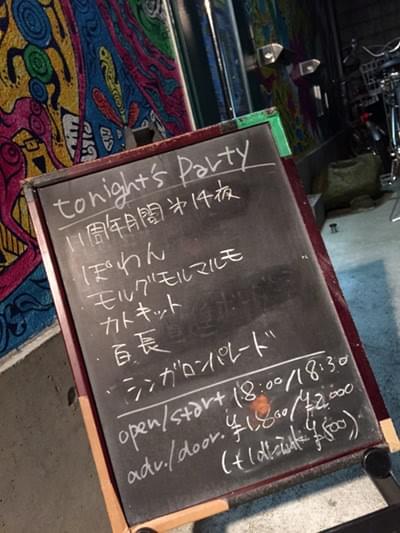 tonight's Party
11周年月間第14夜
・ぽわん
・モルグモルマルモ
・カトキット
・百長
・シンガロンパレード
open/start 18:00/18:30
adv./door. ¥1,800/¥2,000
(+1drink ¥500)